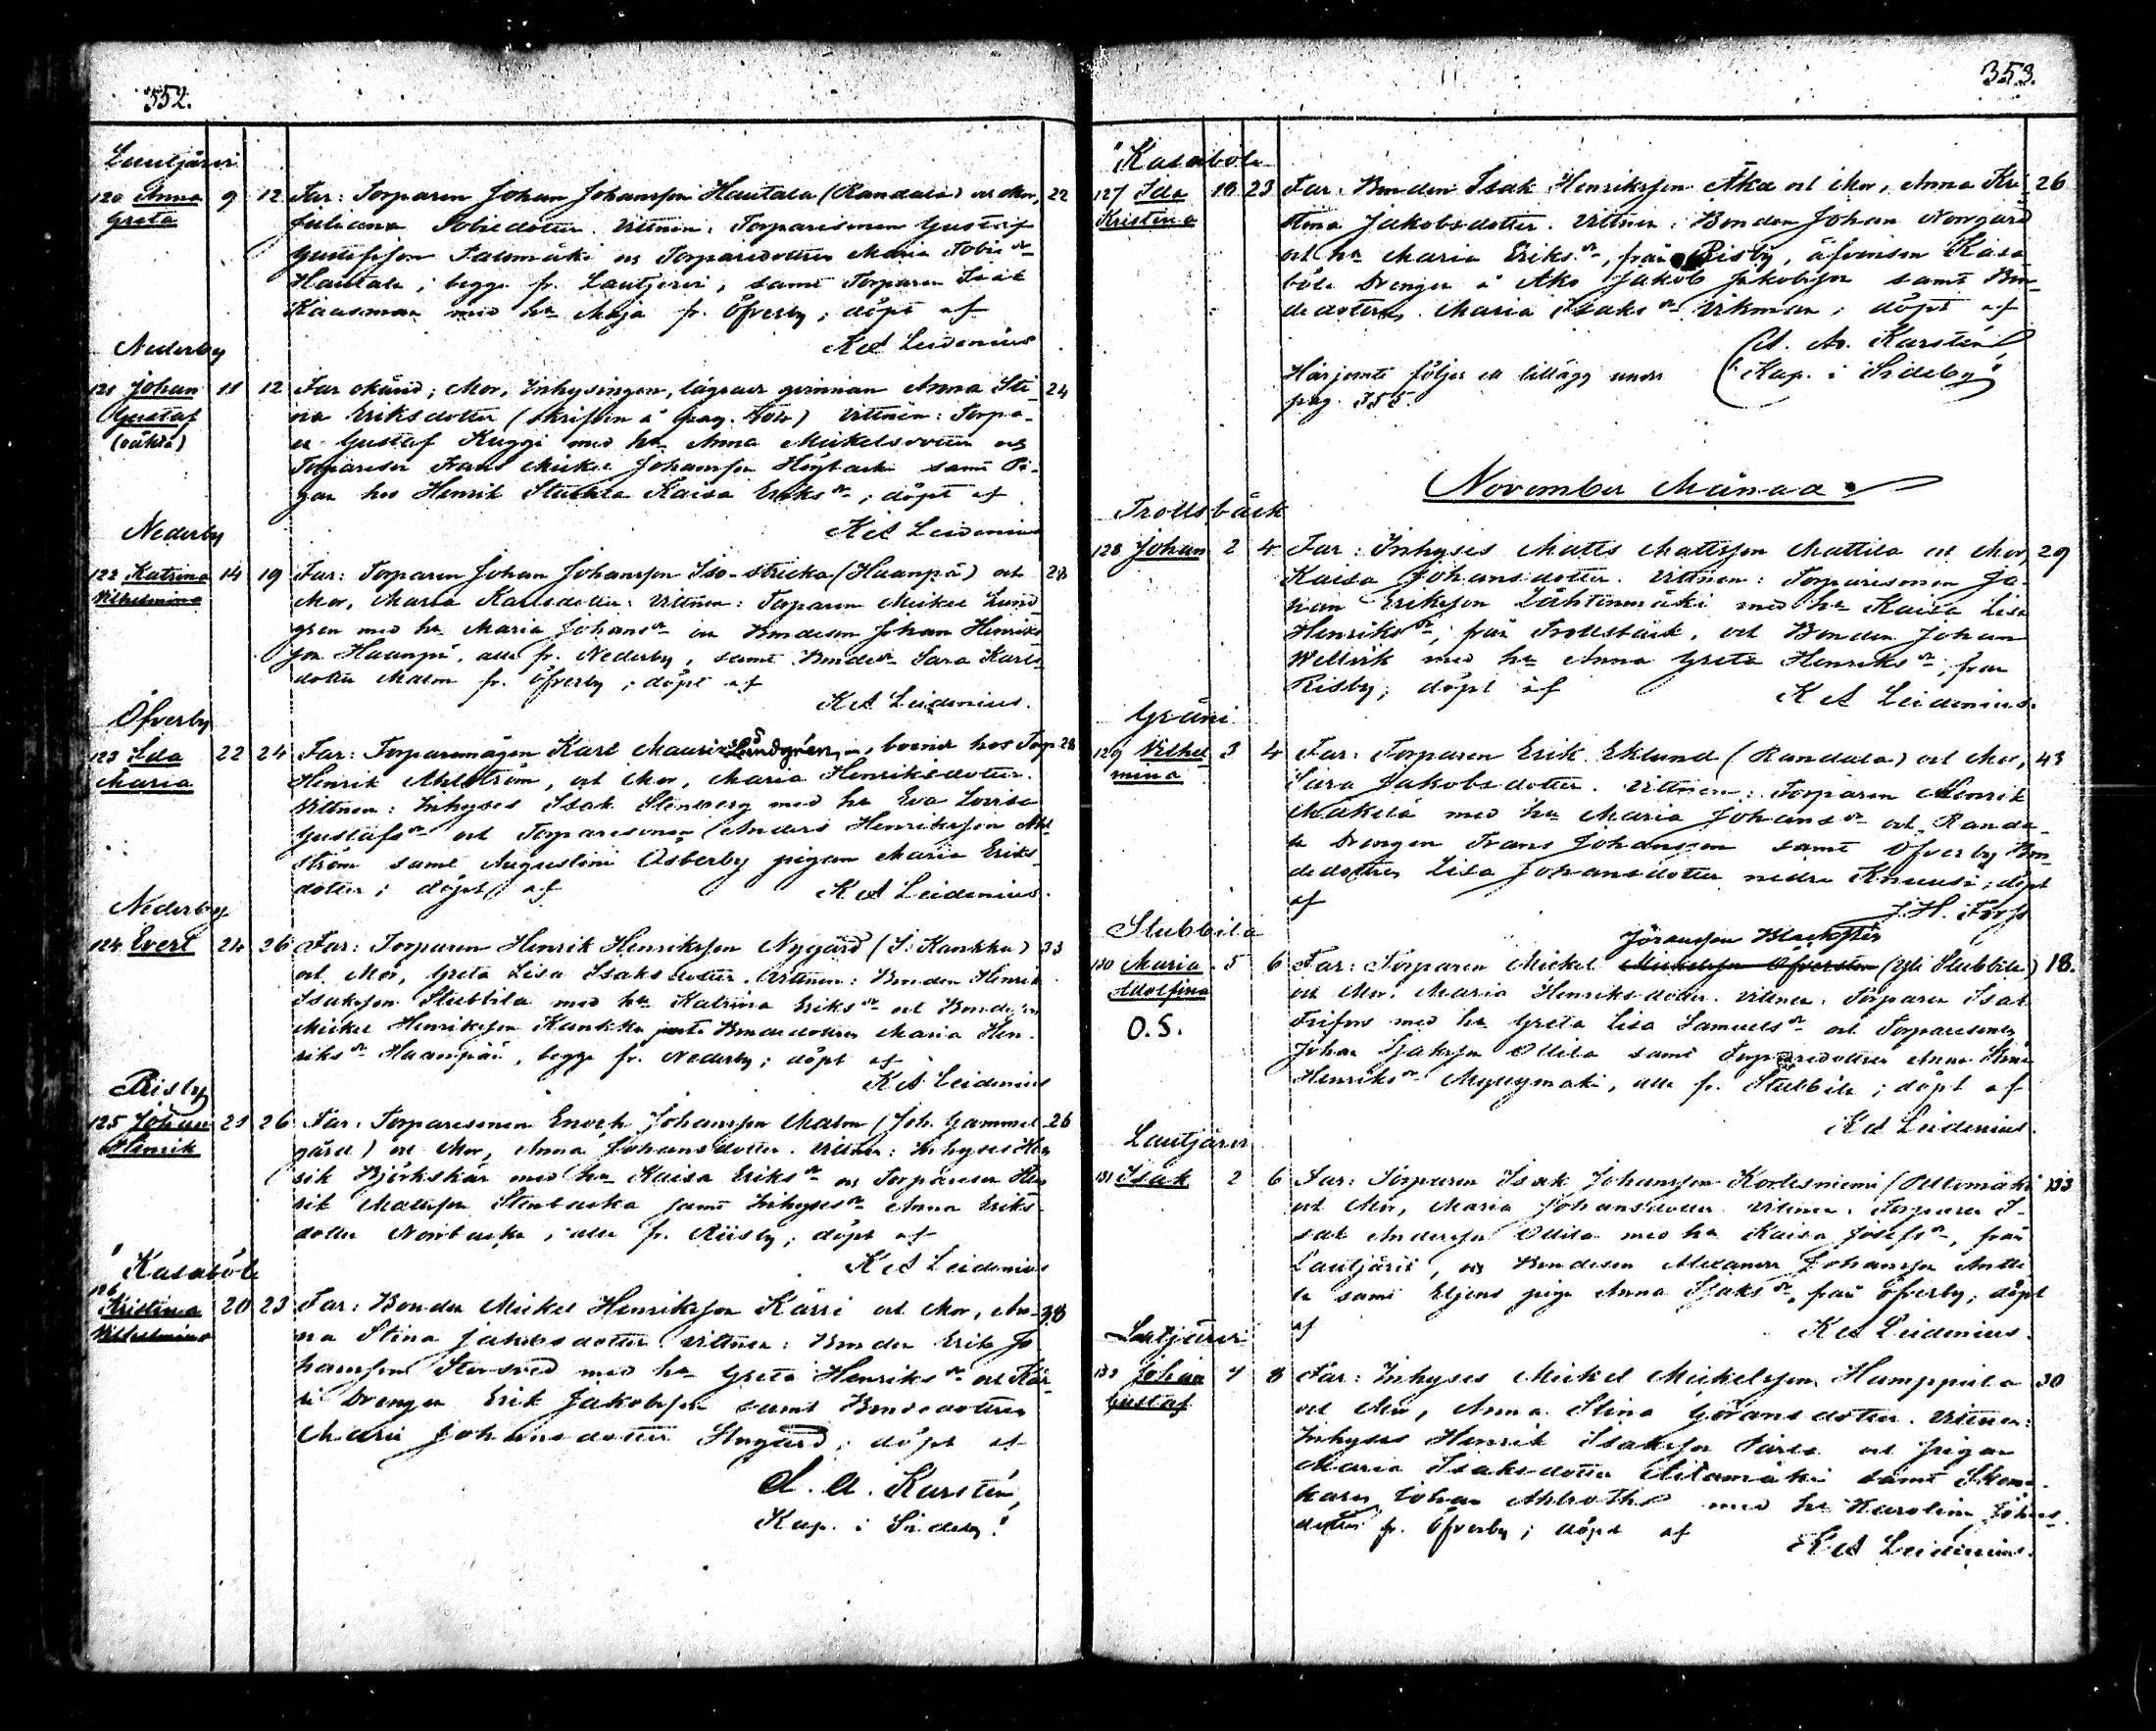 352.
Lautjärvi
120 Anna 9 12 Far: Torparen Johan Johansson Hautala (Randala) och Mor, 22
Greta Juliana Tobiedotter. Vittnen: Torparesonen Gustaf
Gustafsson Salomäki och Torparedottren Maria Tobiedr
Hautala, begge fr. Lautjervi, samt Torparen Isak
Kaasman med hu Maja fr. Öfverby; döpt af
K A Leidenius
Nederby
121 Johan 11 12 Far okänd; Mor, Inhysingen, lägrade qvinnan Anna Sti- 24
Gustaf na Eriksdotter (skriften å pag. ) Vittnen: Torpa-
(oäkta) Gustaf Kuggi med hu Anna Mickelsdotter och
Torpareson Frans Mickel Johansson Högback samt Pi-
gan hos Henrik Stubbila Kaisa Eriksdr; döpt af
K A Leidenius
Nederby
122 Katrina 14 19 Far: Torparen Johan Johansson Iso-stricka (Haanpä) och 28
Vilhelmina Mor, Maria Karlsdotter. Vittnen: Torparen Mickel Lund-
gren med hu Maria Johansdr och Bondeson Johan Henriks-
son Haanpä, alla fr. Nederby, samt Bondedr Sara Karls-
dotter Malm fr. Öfverby; döpt af
K A Leidenius.
Öfverby
123 Ida 22 24 Far: Torparemågen Karl Maurits Lundgren, boende hos Torp. 28
Maria Henrik Ahlström, och Mor, Maria Henriksdotter.
Vittnen: Inhyses Isak Stenberg med hu Eva Lovisa
Gustafsdr och Torparesonen Anders Henriksson Ahl-
ström samt Augustini Åsberby pigan Maria Eriks-
dotter; döpt af K A Leidenius.
Nederby
124 Evert 24 26 Far: Torparen Henrik Henriksson Nygård (I. Kankka) 33
och Mor, Greta Lisa Isaksdotter. Vittnen: Bonden Henrik
Isaksson Stubbila med hu Katrina Eriksdr och Bondeson
Mickel Henriksson Kankka jemte Bondedottren Maria Hen-
riksdr Haanpää, begge fr. Nederby; döpt af
K A Leidenius
Risby
125 Johan 21 26 Far: Torparesonen Enoch Johansson Malm (Joh. Gammel- 26
Henrik gård) och Mor, Anna Johansdotter. Vittnen: Inhyses Hen-
rik Björkskär med hu Kaisa Eriksdr och Torpareson Hen-
rik Mattsson Stenbacka samt Inhysesdr Anna Eriks-
dotter Norrbacka, alla fr. Risby; döpt af
K A Leidenius
Kasaböle
126
Kristina 20 23 Far: Bonden Mickel Henriksson Kärri och Mor, An- 38
Vilhelmina na Stina Jakobsdotter. Vittnen: Bonden Erik Jo-
hansson Storsved med hu Greta Henriksdr och Kär-
ri Drengen Erik Jakobsson samt Bondedottren
Maria Johansdotter Storgård; döpt af
A. A. Karstén,
Kap. i Sideby.
353.
Kasaböle
127 Ida 18 23 Far: Bonden Isak Henriksson Åka och Mor, Anna Kri- 26
Kristina stina Jakobsdotter. Vittnen: Bonden Johan Norrgård
och hu Maria Eriksdr, från Risby, äfvensom Kasa-
böle Drengen å Åka Jakob Jakobsson samt Bon-
dedottren Maria Isaksdr Vikman; döpt af
A. A. Karstén
Kap. i Sideby.
Härjemte följer ett tillägg under
pag. 355.
November Månad
Trollsbäck
128 Johan 2 4 Far: Inhyses Matts Mattsson Mattila och Mor, 29
Kaisa Johansdotter. Vittnen: Torparesonen Jo-
han Eriksson Lähteenmäki med hu Kaisa Lisa
Henriksdr, från Trollsbäck, och Bonden Johan
Wellvik med hu Anna Greta Henriksdr, från
Risby; döpt af K A Leidenius.
Gräni
129 Vilhel- 3 4 Far: Torparen Erik Eklund (Randala) och Mor, 43
mina Sara Jakobsdotter. Vittnen: Torparen Henrik
Mäkelä med hu Maria Johansdr och Randa-
la Drengen Frans Johansson samt Öfverby Bon-
dedottren Lisa Johansdotter nedre Knuusi; döpt
af J. H. Fors
Stubbila
Göransson Blackstar
130 Maria 5 6 Far: Torparen Mickel Mickelsson Öfversten (Yli Stubbila) 18.
Adolfina och Mor, Maria Henriksdotter. Vittnen: Torparen Isak
O.S. Frifors med hu Greta Lisa Samuelsdr och Torparesonen
Johan Isaksson Ollila samt Torparedottren Anna Stina
Henriksdr Myllymäki, alla fr. Stubbila; döpt af
K A Leidenius.
Lautjärvi
131 Isak 2 6 Far: Torparen Isak Johansson Kortesniemi (Peltomäki) 33
och Mor, Maria Johansdotter. Vittnen: Torparen I-
sak Andersson Ollila med hu Kaisa Josefsdr, från
Lautjärvi, och Bondeson Alexander Johansson Antti-
la samt Eljens piga Anna Isaksdr, från Öfverby; döpt
af K A Leidenius.
Lautjärvi
132 Johan 7 8 Far: Inhyses Mickel Mickelsson Humppila 30
Gustaf och Mor, Anna Stina Göransdotter. Vittnen:
Inhyses Henrik Isaksson och pigan
Maria Isaksdotter samt Skoma-
karen Johan Ahlroth med hu Karolina Johans-
dotter fr. Öfverby; döpt af K A Leidenius.